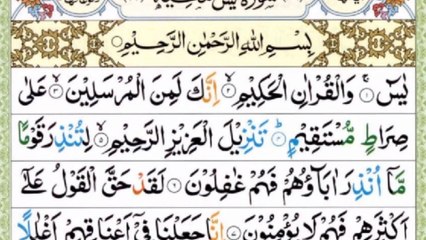 سورة يس مكية
بِسْمِ اللهِ الرَّحْمٰنِ الرَّحِيْمِ
يٰسٓ ۚ﴿۱﴾ وَالْقُرْاٰنِ الْحَكِيْمِ ۙ﴿۲﴾ اِنَّكَ لَمِنَ الْمُرْسَلِيْنَ ۙ﴿۳﴾ عَلٰى
صِرَاطٍ مُّسْتَقِيْمٍ ؕ﴿۴﴾ تَنْزِيْلَ الْعَزِيْزِ الرَّحِيْمِ ۙ﴿۵﴾ لِتُنْذِرَ قَوْمًا
مَّاۤ اُنْذِرَ اٰبَآؤُهُمْ فَهُمْ غٰفِلُوْنَ ﴿۶﴾ لَقَدْ حَقَّ الْقَوْلُ عَلٰۤى
اَكْثَرِهِمْ فَهُمْ لَا يُؤْمِنُوْنَ ﴿۷﴾ اِنَّا جَعَلْنَا فِيْۤ اَعْنَاقِهِمْ اَغْلٰلًا